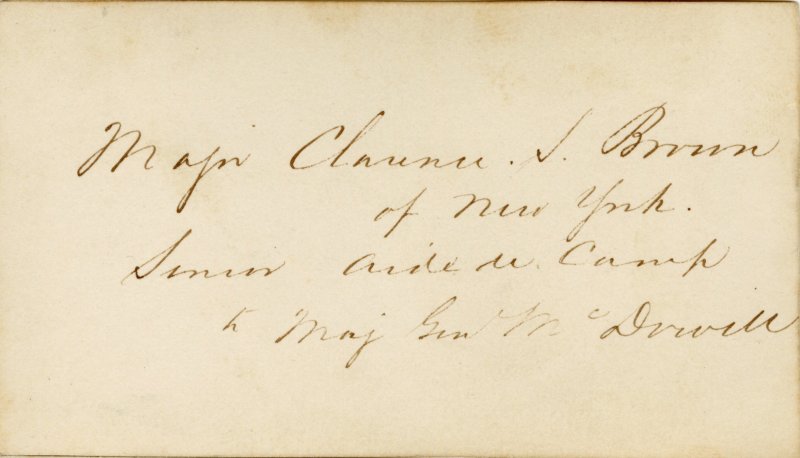 Major Clarence. S. Brown
of New York.
Senior Aide de Camp
to Maj Genl Mc Dowell